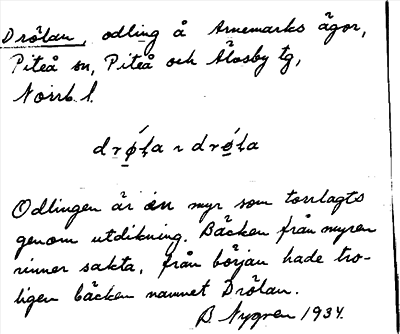 Drölan, odling å Arnemarks ägor,
Piteå sn, Piteå och Älvsby tg,
Norrb. l.
drǿ̣ḷa ~ drǿ̣ḷa
Odlingen är en myr som torrlagts
genom utdikning. Bäcken från myren
rinner sakta, från början hade tro-
ligen bäcken namnet Drölan.
B Nygren 1934.